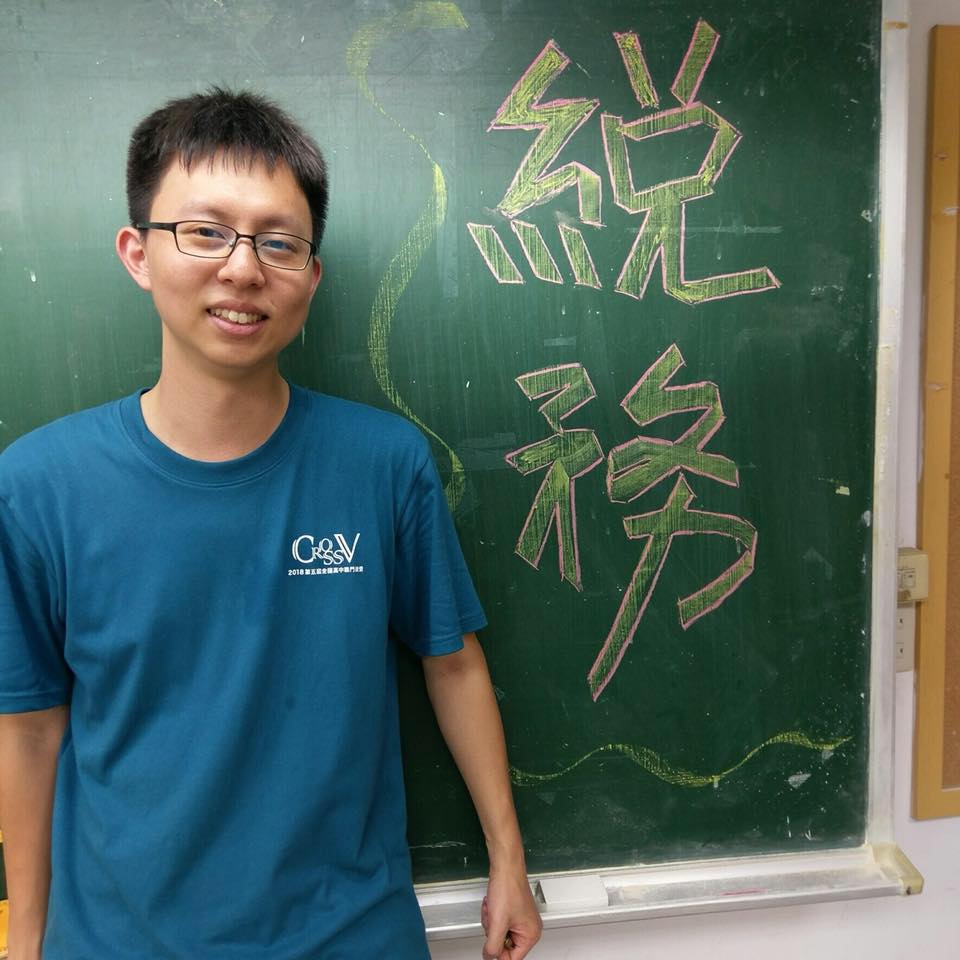 綐務
CROSSV
2018 第五屆全國高中戰鬥法營